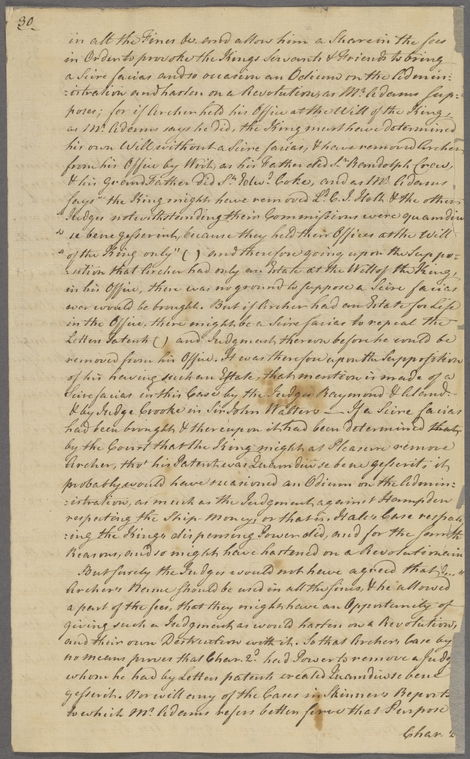 30
in all the Fines &c and allow him a Share in the fees
in Order to provoke the Kings Servants & Friends to bring
a Scire facias and so occasion an Odium on the Admin-
:istration and hasten on a Revolution, as Mr. Adams sup-
poses; for if Archer held his Office at the Will of the King,
as Mr. Adams says he did, the King must have determined
his own Will without a Scire facias, & have removed Archer
from his Office by Writ, as his Father did Sr. Randolph Crew,
& his Grand Father did Sr. Edwd. Coke, and as Mr. Adams
says "the King might have removed Ld. C. J. Holt & the other
Judges notwithstanding their Commissions were quamdiu
"se bene gesserint, because they held their Offices at the Will
"of the King only" ( ) and therefore going upon the Suppo-
:sition that Archer had only an Estate at the Will of the King,
in his Office, there was no ground to suppose a Scire facias
ever would be brought. But if Archer had an Estate for Life
in the Office, there might be a Scire facias to repeal the
Letters Patent ( ) and Judgment thereon before he could be
removed from his Office. It was therefore upon the Supposition
of his having such an Estate, that mention is made of a
Scire facias in this Case by the Judges Raymond &
& by Judge Crooke in Sir John Walters — If a Scire facias
had been brought & thereupon it had been determined
by the Court that the King might at Pleasure remove
Archer, tho' his Patent was Quamdiu se bene gesserit; it
probably would have occasioned an Odium on the Admin-
:istration, as much as the Judgment against Hampden
respecting the Ship Money, or that in Hales's Case respect-
:ing the Kings dispensing Power did, and for the same
Reasons, and so might have hastened on a Revolution
But surely the Judges would not have agreed that
Archer's Name should be used in all the fines, & he allowed
a part of the fees, that they might have an Opportunity of
giving such a Judgment as would hasten on a Revolution,
and their own Destruction with it. So that Archers Case by
no means proves that Char. 2d. had Power to remove a Judge
whom he had by Letters patent created Quamdiu se bene
gesserit. Nor will any of the Cases in Skinner's Reports
to which Mr. Adams refers better serve that Purpose
Char. 2